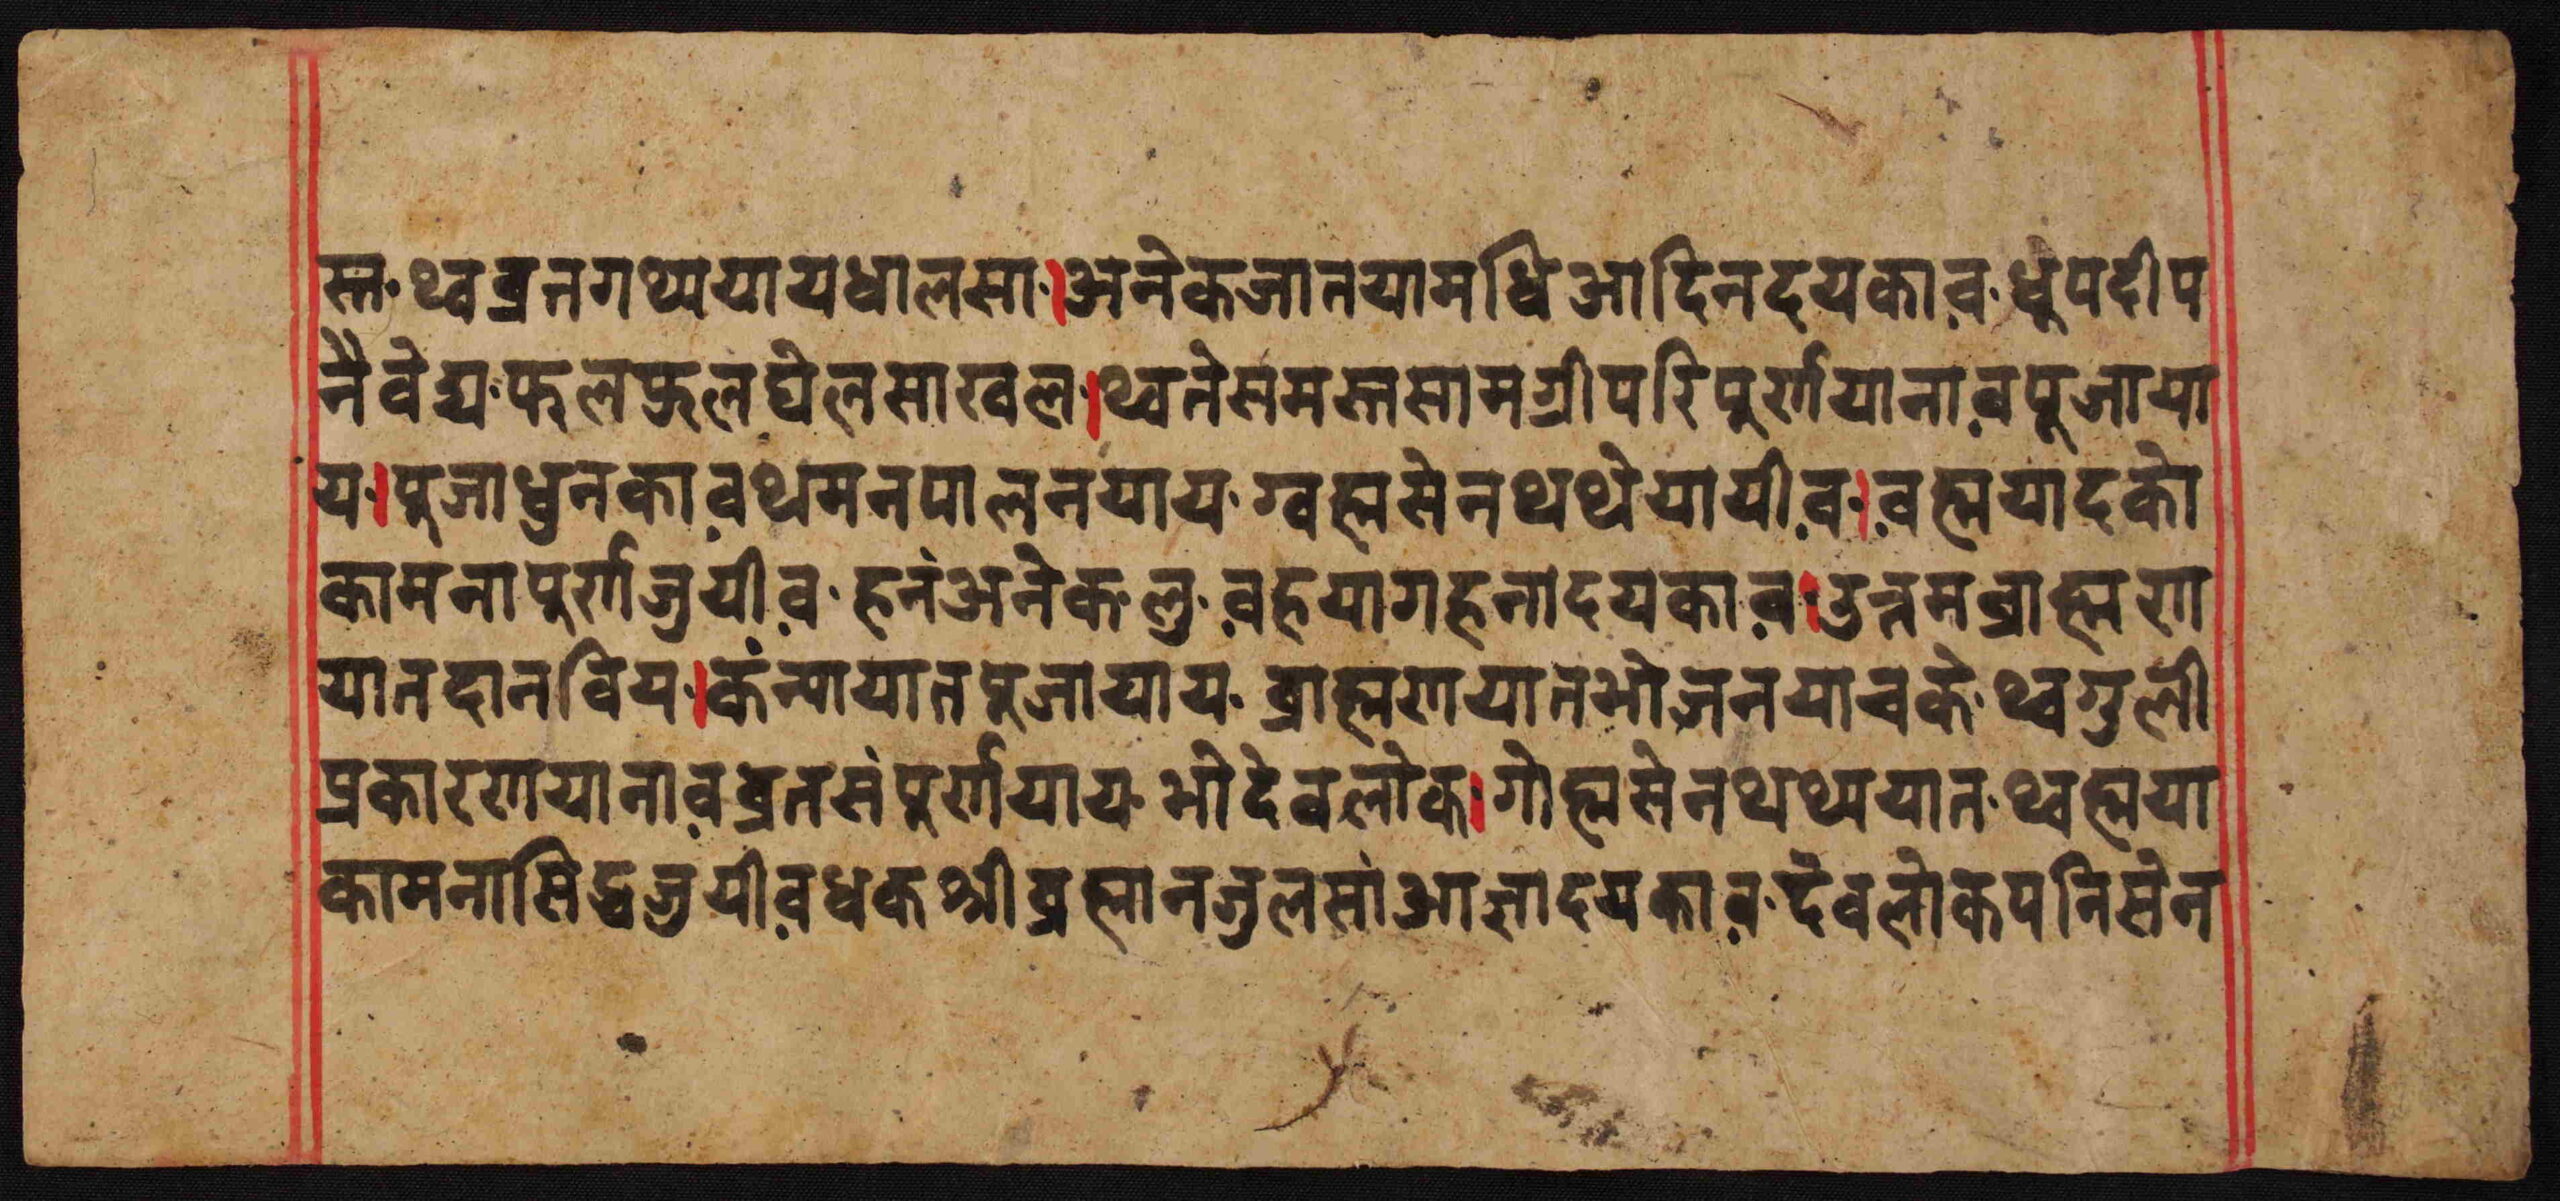 स्त· थ्व व्रत गथ्य याय धालसा·। अनेक जात या मधि आदिन दयकाव़· धूप दीप
नैवेद्य· फल फूल घेल साखल·। थ्वते समस्त सामग्री परिपुर्ण याना व़ पूजा या
य·। पुजा धुनकाव़ थमन पालन याय· ग्वह्मसेन थथे यायीव़·। व़ह्मया दको
कामना पुर्ण जुयीव़· हनं अनेक· लु· व़ह या गहना दयकाव़·। उत्तम ब्राह्मण
यात दान विय·। कंन्यायात पुजा याय· ब्राह्मण यात भोजन याचके· थ्वगुली
प्रकारण याना व़ व्रत संपुर्ण याय· भो देवलोक·। गोह्मसेन थथ्य यात· थ्वह्मया
कामना सिद्ध जुयीव़ धक श्री ब्रह्मान जुलसां आज्ञा दयकाव़· देवलोक पनिसेन